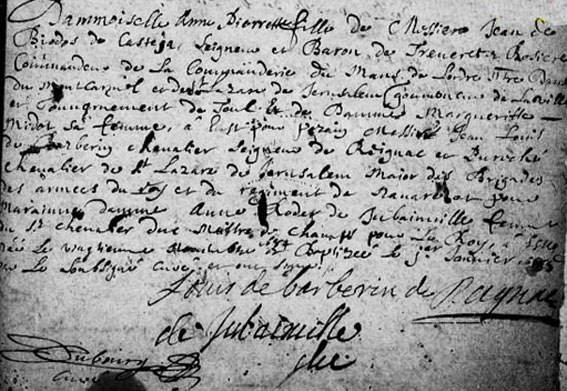 Dammoiselle Anne Pierrette fille de Messire Jean de
Biodos de Casteja, Seigneur et Baron de Treveret Rosiere
Commandeur de La Commanderie du Mans de Lordre Nre Dame
du Mont Carmel et de St Lazare de Jerusalem Gouverneur de La Ville
et Gouvernement de Toul Et de Damme Margueritte
Midot sa femme, à Eust pour parain Messire Jean Louis
de Barberin chevalier Seigneur de Reignac et
Chevalier de St Lazare de Jerusalem Maior des Brigades
des armees du Roy et du regiment de Navare et pour
Maraine damme Anne Roder de Jubainville femme
du Sr chevalier duc Maistre de Champs pour Le Roy,
née le vingtieme et Baptizée le 1er Janvier
par Le Soubsigné curé
Louis de barberin de Ragnac
de Jubainville
Dubourg
curé